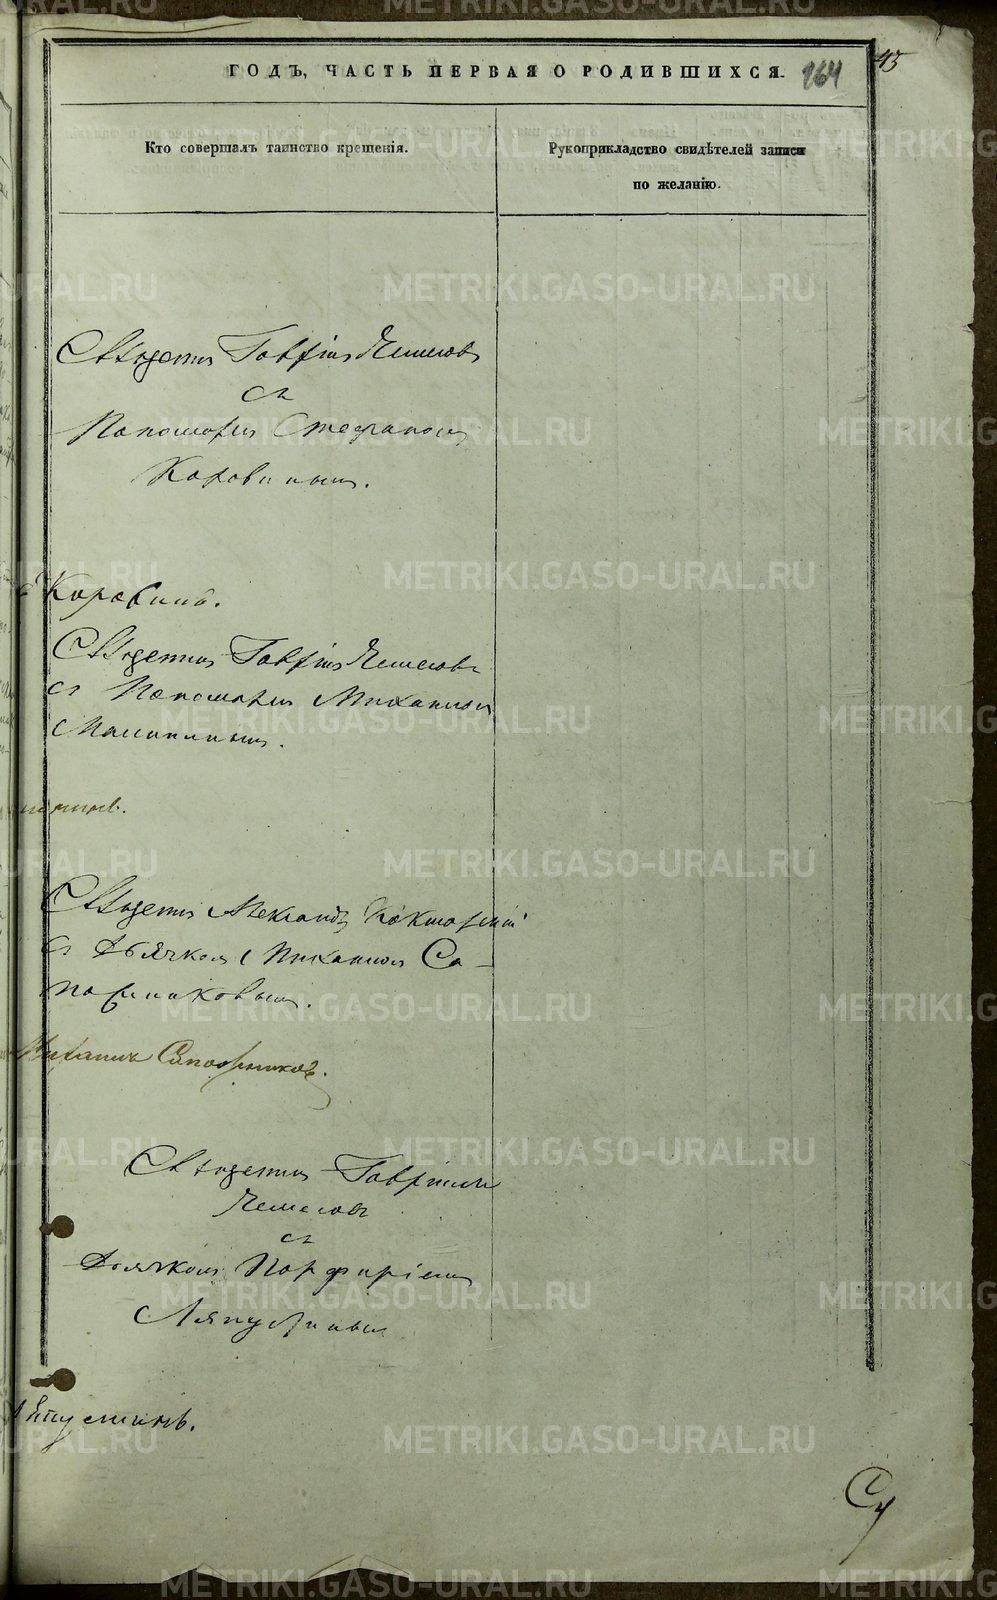 ГОДЪ, ЧАСТЬ ПЕРВАЯ О РОДИВШИХСЯ.
164
45
Кто совершалъ таинство крещенія.
Рукоприкладство свидѣтелей записи
по желанію.
Священникъ Гавріилъ
съ
Пономаремъ Стефаномъ
Коровинымъ.
Коровинъ.
Священникъ Гавріилъ
съ Пономаремъ Михаиломъ
Священникъ Александръ
съ Дьячкомъ Михаиломъ Са-
пожниковымъ.
Михаилъ Сапожниковъ.
Священникъ Гавріилъ
съ
Дьячкомъ Порфиріемъ
Ляпустинымъ
Ляпустинъ.
METRIKI.GASO-URAL.RU